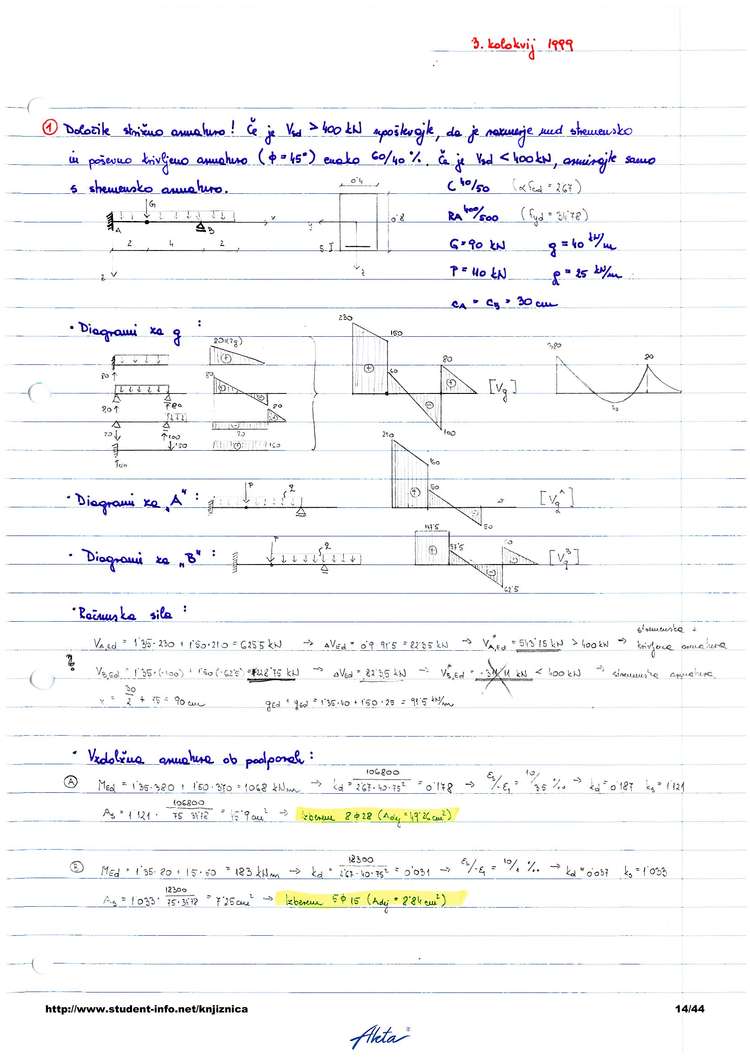 3. kolokvij 1999
① Določite strižno armaturo! Če je Vsd > 400 kN upoštevajte, da je razmerje med stremensko
in poševno krivljeno armaturo (φ = 45°) enako 60/40 %. Če je Vsd < 400 kN, armirajte samo
s stremensko armaturo.
C 40/50 (αfcd = 2'67)
RA 400/500 (fyd = 34'78)
G = 90 kN g = 40 kN/m
P = 110 kN q = 25 kN/m
cA = cB = 30 cm
G
A B x
2 4 2
z
0'4
0'8
5
y
z
• Diagrami za g :
230
150
60
80
100
[Vg]
380
20
• Diagrami za „A" :
P
q
210
160
50
50
[VqA]
• Diagrami za „B" :
P
q
147'5
37'5
62'5
[VqB]
• Računska sila :
VA,Ed = 1'35·230 + 1'50·210 = 625'5 kN → ΔVEd = 0'9·91'5 = 82'35 kN → V*A,Ed = 543'15 kN > 400 kN → stremenska + krivljena armatura
? VB,Ed = 1'35·(-100) + 1'50·(-62'5) = -228'75 kN → ΔVEd = 82'35 kN → V*B,Ed = kN < 400 kN → stremenska armatura
30/2 + 75 = 90 cm gEd + qEd = 1'35·40 + 1'50·25 = 91'5 kN/m
• Vzdolžna armatura ob podporah :
Ⓐ MEd = 1'35·380 + 1'50·370 = 1068 kNm → kd = 106800/2'67·40·75² = 0'178 → εs/-εc = 10/3'5 ‰ → kd = 0'187 ks = 1'121
As = 1'121 · 106800/75·34'78 = cm² → Izberem 8φ28 (Adej = 49'26 cm²)
Ⓑ MEd = 1'35·20 + 1'5· = 183 kNm → kd = 18300/2'67·40·75² = 0'031 → εs/-εc = ‰ → kd = 0'037 ks = 1'033
As = 1'033 · 18300/75·34'78 = 7'25 cm² → Izberem 5φ15 (Adej = 8'84 cm²)
http://www.student-info.net/knjiznica 14/44
Akta